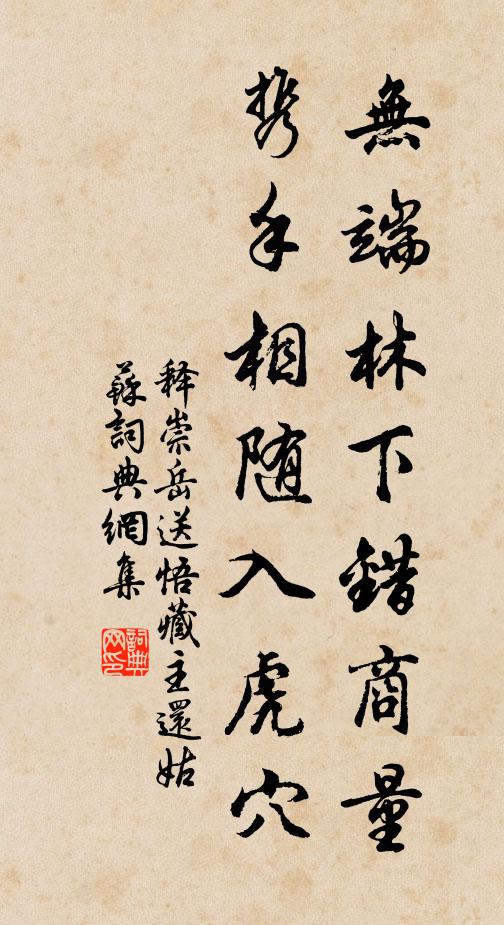 無端林下錯商量
携手相随入虎穴
释崇岳送悟藏主還姑
蘇詞典網集
詞典
网印